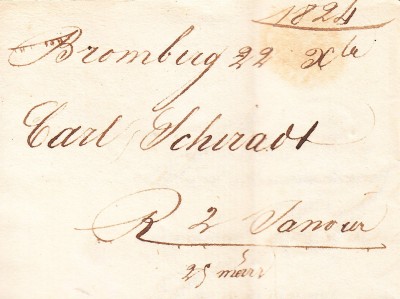 1824
Bromberg 22 Xbr
Carl Schradt
R 2 Janvier
25 mars